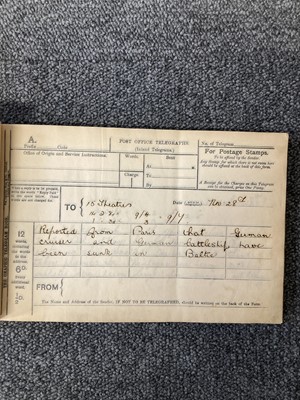 A.
POST OFFICE TELEGRAPHS.
(Inland Telegrams.)
No. of Telegram
Prefix Code
Office of Origin and Service Instructions.
Words.
Sent
At
To
By
Charge
For Postage Stamps.
To be affixed by the Sender.
Any Stamp for which there is not room here should be affixed at the back of this Form.
TO
15 Theatres
Nov 28th
12
words
6D.
½D.
Reported from Paris that German
cruiser and German battleship have
been sunk in Baltic
FROM
The Name and Address of the Sender, IF NOT TO BE TELEGRAPHED, should be written on the back of the Form.